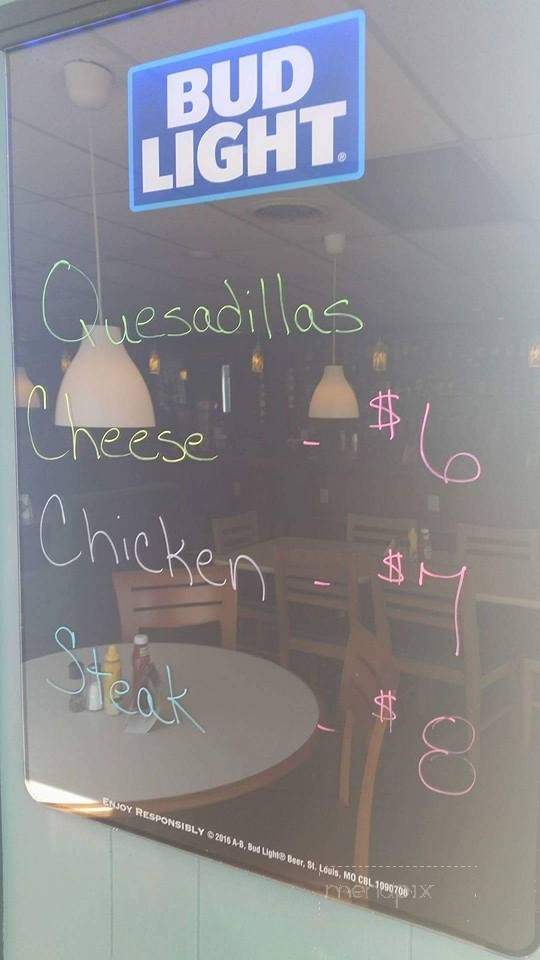 BUD
LIGHT®
Quesadillas
Cheese - $6
Chicken - $7
Steak - $8
ENJOY RESPONSIBLY © 2016 A-B, Bud Light® Beer, St. Louis, MO CBL 1090700
menupix